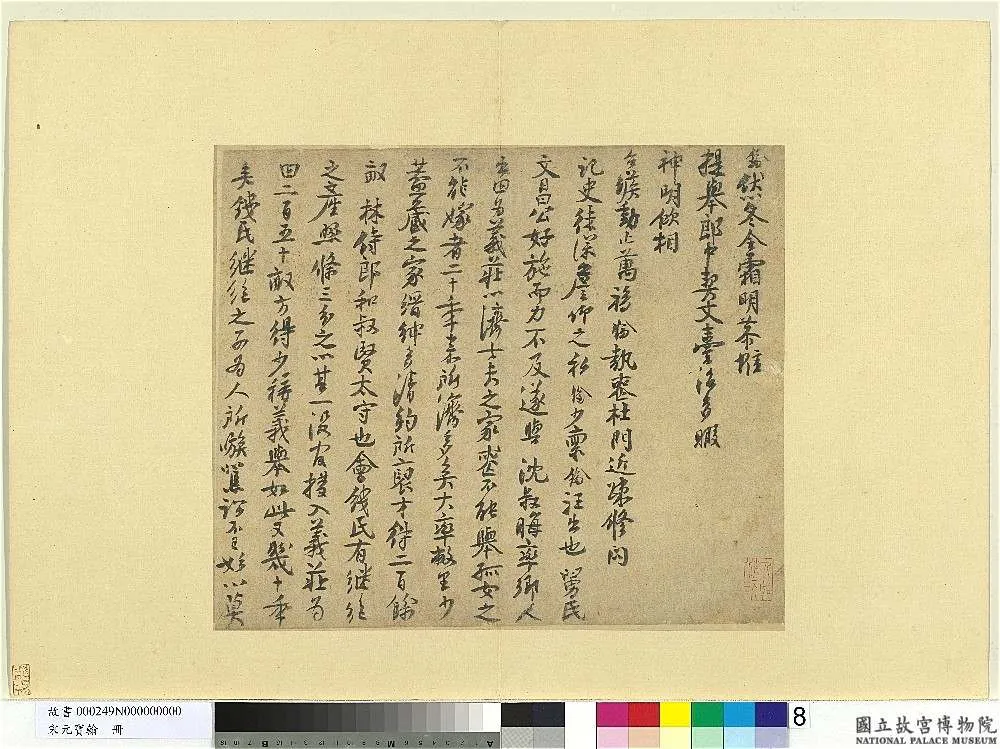 然冬令霜明恭惟
提舉郎中契丈臺治多暇
神明僚相
台候動止萬福 執喪杜門近疎修問
記史徒深瞻仰之私 少稟 汪出也 舅氏
文昌公好施而力不及遂與 沈叔晦率鄉人
置田為義莊以濟士夫之家喪不能舉孤女之
不能嫁者二十年來所濟多矣大率鄉里少
蓋藏之家縉紳多清約所裒才得二百餘
畝 林侍郎和叔賢太守也會錢氏有繼絕
之產照條三分之以其一沒官撥入義莊為
田二百五十畝方得少稱義舉如此又幾十年
矣錢氏繼絕之子為人所 訟不 以
故書 000249N000000000
宋元寶翰 冊
8
國立故宮博物院
NATIONAL PALACE MUSEUM